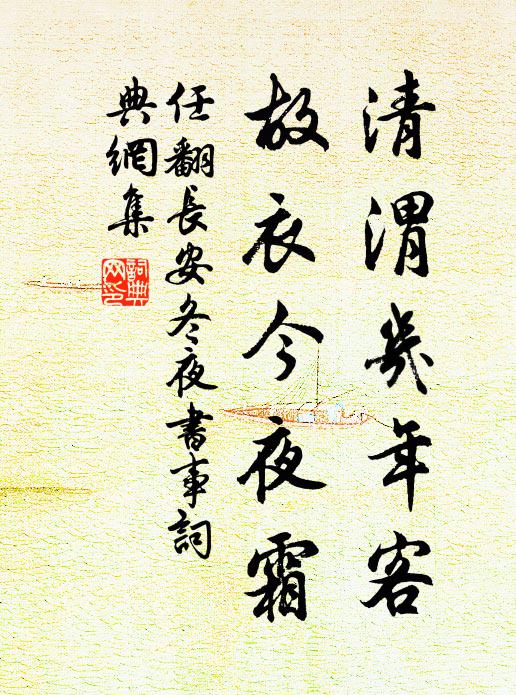 清渭幾年客
故衣今夜霜
任翻長安冬夜書事詞
典網集
詞典網印